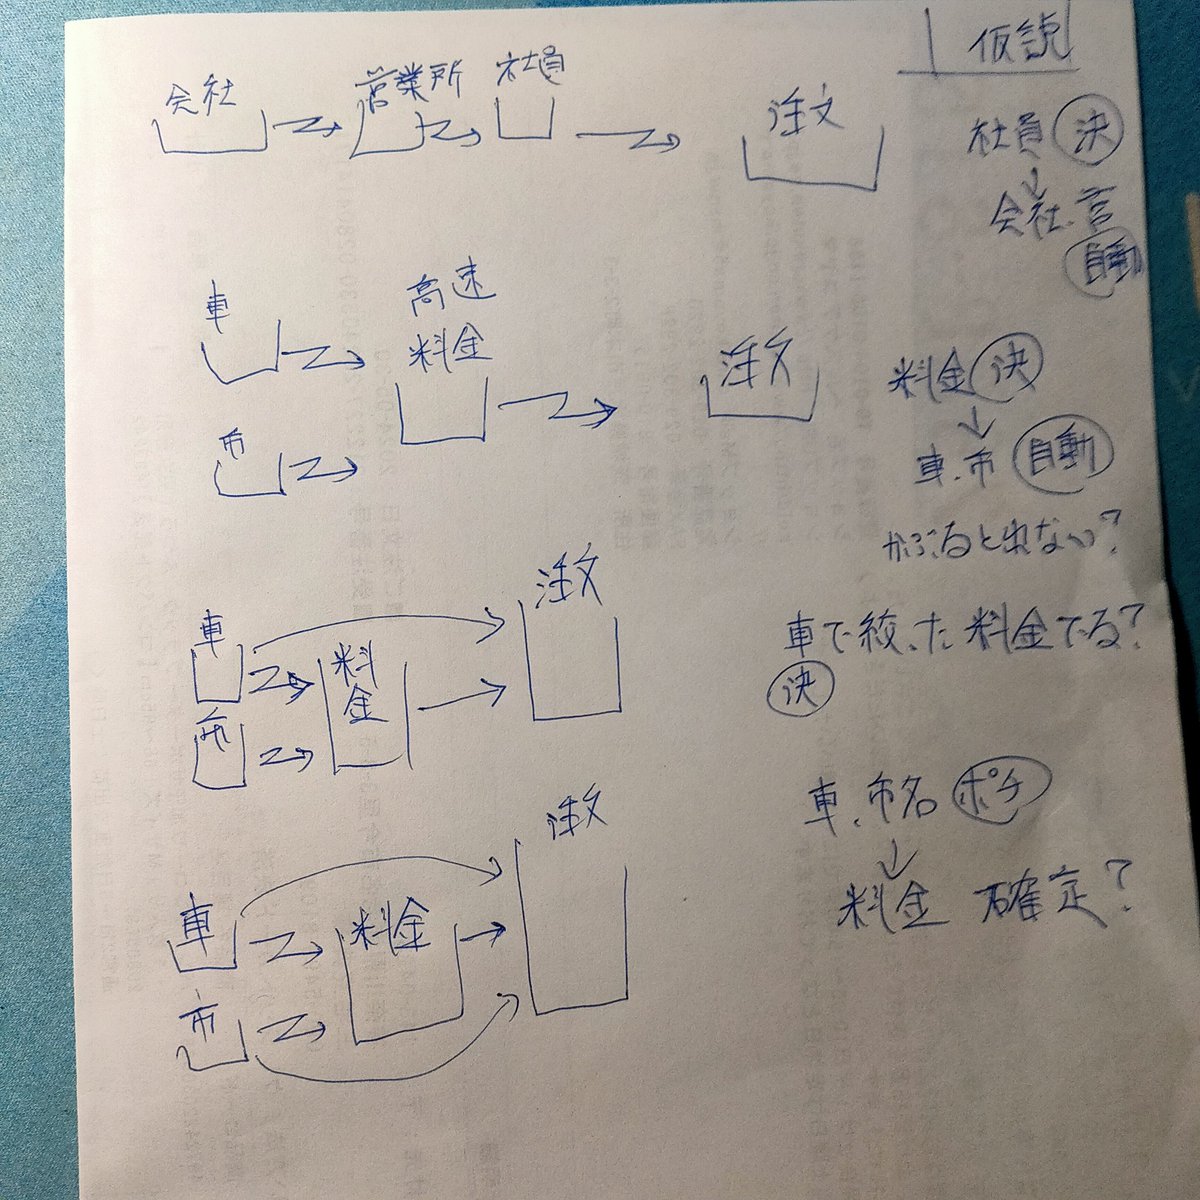 仮説
会社 営業所 社員 注文
社員 決
会社.営
自動
車 高速
料金 注文
市
料金 決
車.市 自動
かぶると出ない?
車 料金 注文
市
車で絞った料金でる?
決
車.市名 ポチ
料金 確定?
注文
車 料金
市